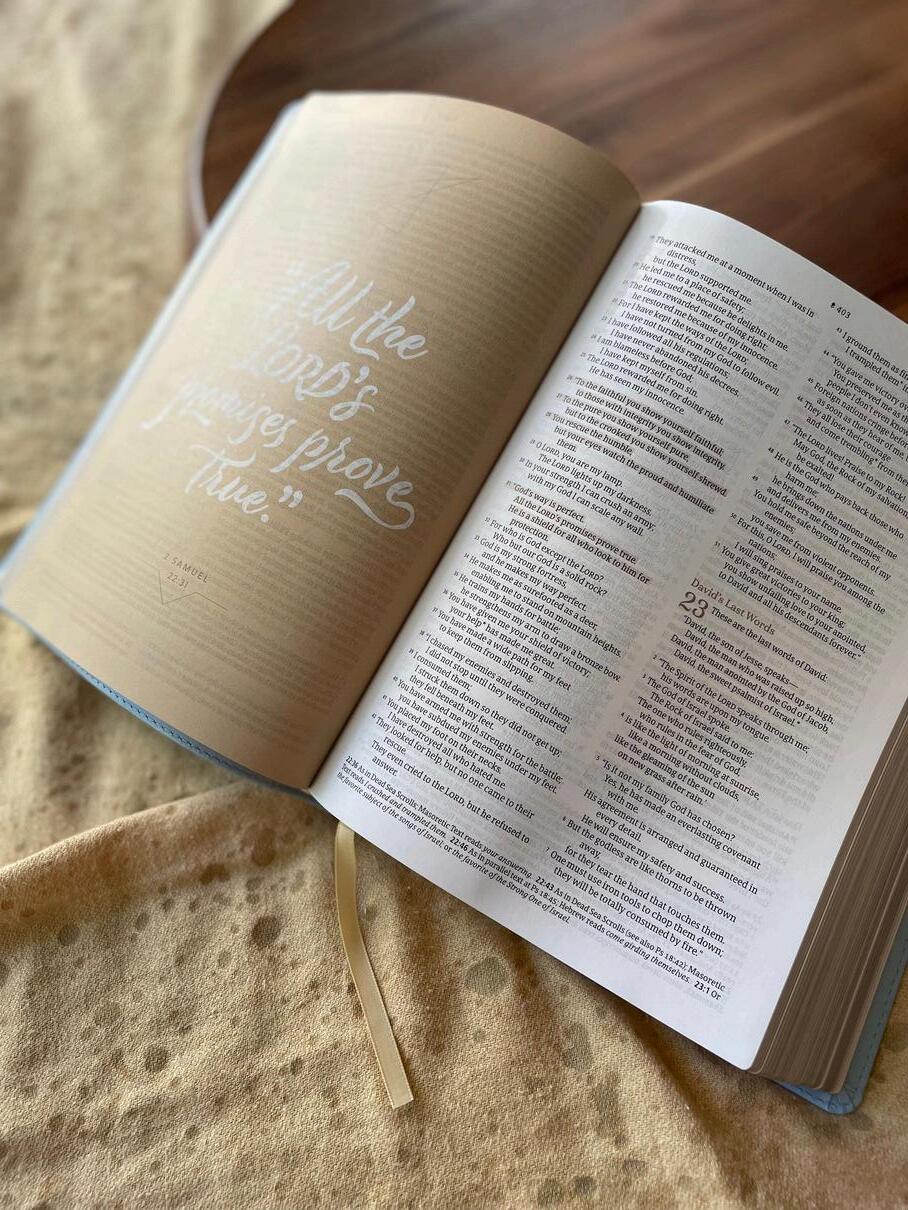 “All the
LORD’S
promises prove
true.”
2 SAMUEL
22:31
403
19 They attacked me at a moment when I was in
distress,
but the LORD supported me.
20 He led me to a place of safety;
he rescued me because he delights in me.
21 The LORD rewarded me for doing right;
he restored me because of my innocence.
22 For I have kept the ways of the LORD;
I have not turned from my God to follow evil.
23 I have followed all his regulations;
I have never abandoned his decrees.
24 I am blameless before God;
I have kept myself from sin.
25 The LORD rewarded me for doing right.
He has seen my innocence.
26 “To the faithful you show yourself faithful;
to those with integrity you show integrity.
27 To the pure you show yourself pure,
but to the crooked you show yourself shrewd.
28 You rescue the humble,
but your eyes watch the proud and humiliate
them.
29 O LORD, you are my lamp.
The LORD lights up my darkness.
30 In your strength I can crush an army;
with my God I can scale any wall.
31 “God’s way is perfect.
All the LORD’s promises prove true.
He is a shield for all who look to him for
protection.
32 For who is God except the LORD?
Who but our God is a solid rock?
33 God is my strong fortress,
and he makes my way perfect.
34 He makes me as surefooted as a deer,
enabling me to stand on mountain heights.
35 He trains my hands for battle;
he strengthens my arm to draw a bronze bow.
36 You have given me your shield of victory;
your help* has made me great.
37 You have made a wide path for my feet
to keep them from slipping.
38 “I chased my enemies and destroyed them;
I did not stop until they were conquered.
39 I consumed them;
I struck them down so they did not get up;
they fell beneath my feet.
40 You have armed me with strength for the battle;
you have subdued my enemies under my feet.
41 You placed my foot on their necks.
I have destroyed all who hated me.
42 They looked for help, but no one came to their
rescue.
They even cried to the LORD, but he refused to
answer.
43 I ground them as fine
I trampled them*
44 “You gave me victory
You preserved me as
people I don’t even know
45 Foreign nations cringe before
as soon as they hear of me
46 They all lose their courage
and come trembling* from the
47 “The LORD lives! Praise to my Rock!
May God, the Rock of my salvation,
be exalted!
48 He is the God who pays back those who
harm me;
he brings down the nations under me
49 and delivers me from my enemies.
You hold me safe beyond the reach of my
enemies;
you save me from violent opponents.
50 For this, O LORD, I will praise you among the
nations;
I will sing praises to your name.
51 You give great victories to your king;
you show unfailing love to your anointed,
to David and all his descendants forever.”
David’s Last Words
23 These are the last words of David:
“David, the son of Jesse, speaks—
David, the man who was raised up so high,
David, the man anointed by the God of Jacob,
David, the sweet psalmist of Israel.*
2 “The Spirit of the LORD speaks through me;
his words are upon my tongue.
3 The God of Israel spoke.
The Rock of Israel said to me:
‘The one who rules righteously,
who rules in the fear of God,
4 is like the light of morning at sunrise,
like a morning without clouds,
like the gleaming of the sun
on new grass after rain.’
5 “Is it not my family God has chosen?
Yes, he has made an everlasting covenant
with me.
His agreement is arranged and guaranteed in
every detail.
He will ensure my safety and success.
6 But the godless are like thorns to be thrown
away,
for they tear the hand that touches them.
7 One must use iron tools to chop them down;
they will be totally consumed by fire.”
22:36 As in Dead Sea Scrolls; Masoretic Text reads your answering. 22:43 As in Dead Sea Scrolls (see also Ps 18:42); Masoretic
Text reads I crushed and trampled them. 22:46 As in parallel text at Ps 18:45; Hebrew reads come girding themselves. 23:1 Or
the favorite subject of the songs of Israel; or the favorite of the Strong One of Israel.